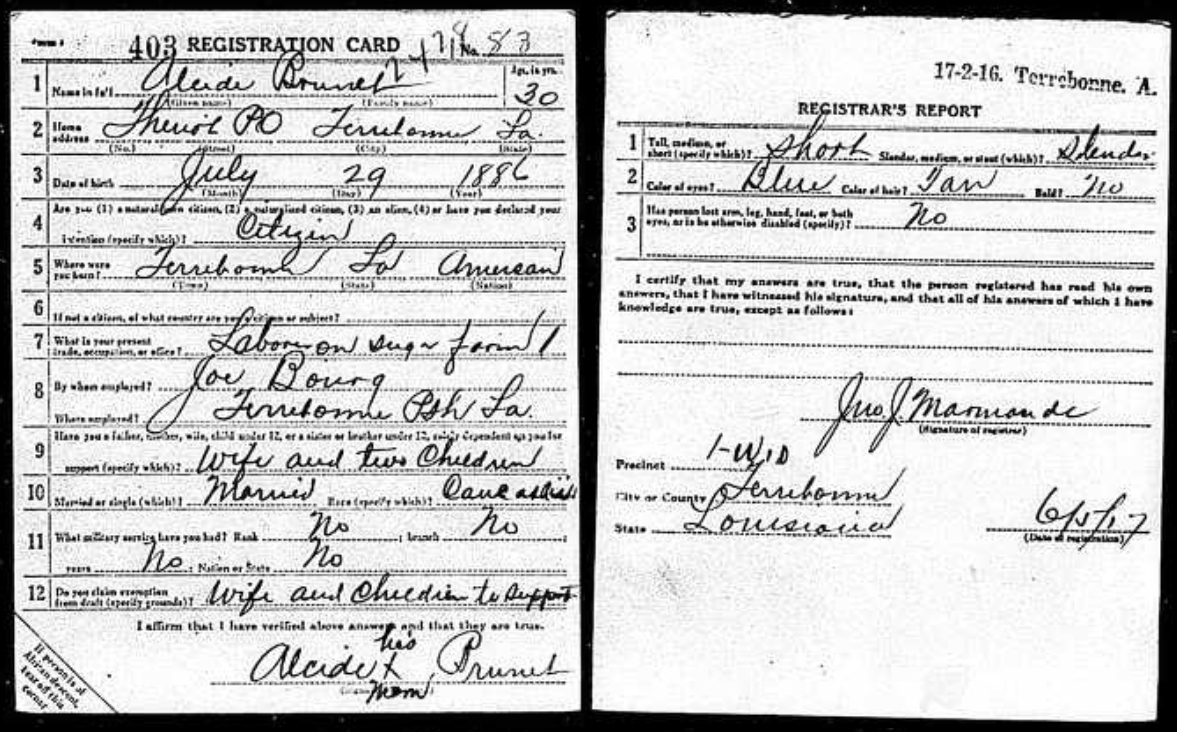 Form 1 403 REGISTRATION CARD No. 83
1 Name in full Alcide Brunet Age, in yrs. 30
(Given name) (Family name)
2 Home address Theriot PO Terrebonne La.
(No.) (Street) (City) (State)
3 Date of birth July 29 1886
(Month) (Day) (Year)
4 Are you (1) a natural-born citizen, (2) a naturalized citizen, (3) an alien, (4) or have you declared your
intention (specify which)? Citizen
5 Where were you born? Terrebonne La American
(Town) (State) (Nation)
6 If not a citizen, of what country are you a citizen or subject?
7 What is your present trade, occupation, or office? Labor on sugar farm 1
8 By whom employed? Joe Bourg
Where employed? Terrebonne Psh La.
9 Have you a father, mother, wife, child under 12, or a sister or brother under 12, solely dependent on you for
support (specify which)? Wife and two Children
10 Married or single (which)? Married Race (specify which)? Caucasian
11 What military service have you had? Rank No ; branch No ;
years No ; Nation or State No
12 Do you claim exemption from draft (specify grounds)? Wife and Children to support
I affirm that I have verified above answers and that they are true.
his
Alcide X Brunet
If person is of
African descent,
tear off this
corner
17-2-16. Terrebonne. A.
REGISTRAR'S REPORT
1 Tall, medium, or short (specify which)? Short Slender, medium, or stout (which)? Slender
2 Color of eyes? Blue Color of hair? Tan Bald? No
3 Has person lost arm, leg, hand, foot, or both
eyes, or is he otherwise disabled (specify)? No
I certify that my answers are true, that the person registered has read his own
answers, that I have witnessed his signature, and that all of his answers of which I have
knowledge are true, except as follows:
Jno. J. Marmande
(Signature of registrar)
Precinct 1-W.10
City or County Terrebonne
State Louisiana 6/5/17
(Date of registration)